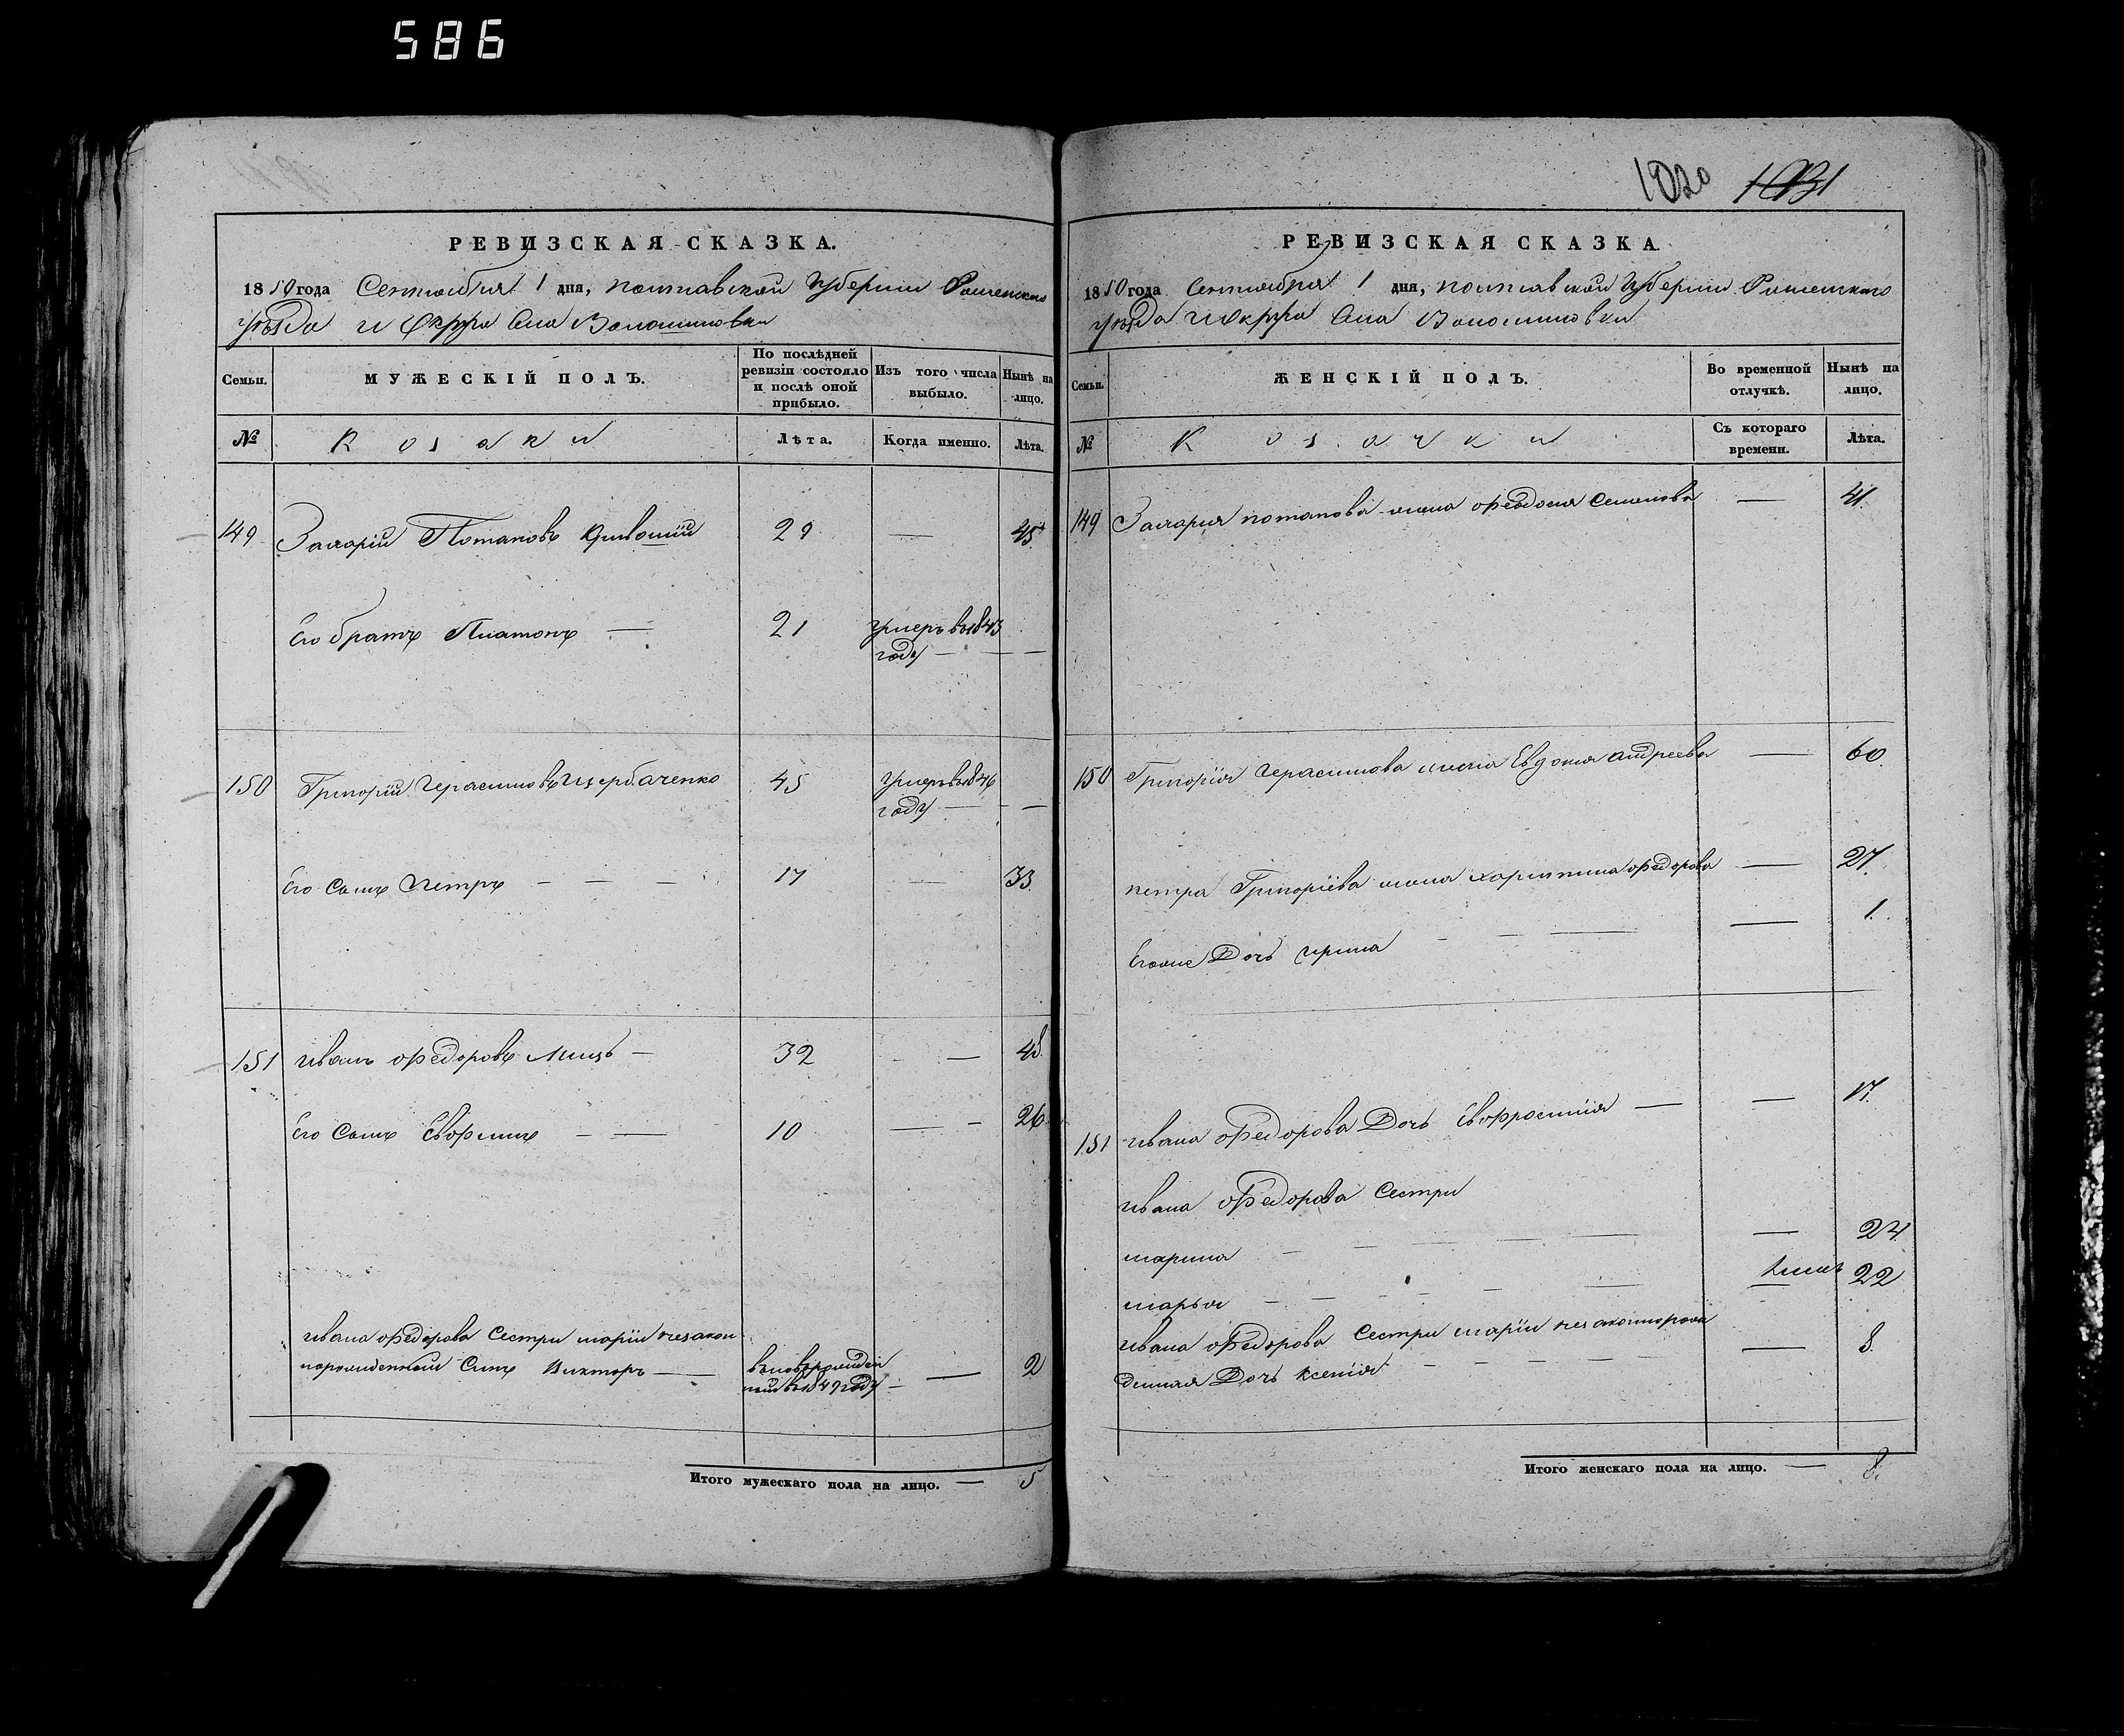 586
1020 1031
РЕВИЗСКАЯ СКАЗКА.
1850 года Сентября 1 дня, полтавской Губернии Роменского
уѣзда и Округа Села Волошиновки
Семьи.
МУЖЕСКІЙ ПОЛЪ.
По послѣдней ревизіи состояло и послѣ оной прибыло.
Изъ того числа выбыло.
Нынѣ на лицо.
№
Козаки
Лѣта.
Когда именно.
Лѣта.
149 Захарій Потаповъ 29 — 45
Его братъ Платонъ — 21 Умеръ въ 1843
году — —
150 Григорій Герасимовъ Щербаченко 45 Умеръ в 1846
году — —
Его Сынъ Петръ — — — 17 — 33.
151 Иванъ Федоровъ — 32 — 48.
Его Сынъ Евфимъ — — 10 — 26
Ивана Федорова Сестры Маріи незакон
норожденный Сынъ Викторъ — вновьрожден
ный въ 1849 году — — 2
Итого мужескаго пола на лицо. — 5
РЕВИЗСКАЯ СКАЗКА.
1850 года Сентября 1 дня, полтавской Губернии Роменского
уѣзда и Округа Села Волошиновки
Семьи.
ЖЕНСКІЙ ПОЛЪ.
Во временной отлучкѣ.
Нынѣ на лицо.
№
Козачки
Съ котораго времени.
Лѣта.
149 Захария потапова жена Феодосия Семенова — 41
150 Григорія Герасимова жена Евдокия Андреева — 60.
петра Григоріева жена Харитина Федорова — 27.
Егоже Дочь Ирина — — — 1.
151 Ивана Федорова Дочь Евфросинія — — 17.
Ивана Федорова Сестры
Марина — — — — 24
Марья — — — 22
Ивана Федорова Сестры Маріи незаконнорож
денная Дочь Ксенія — — — 8.
Итого женскаго пола на лицо. — 8.